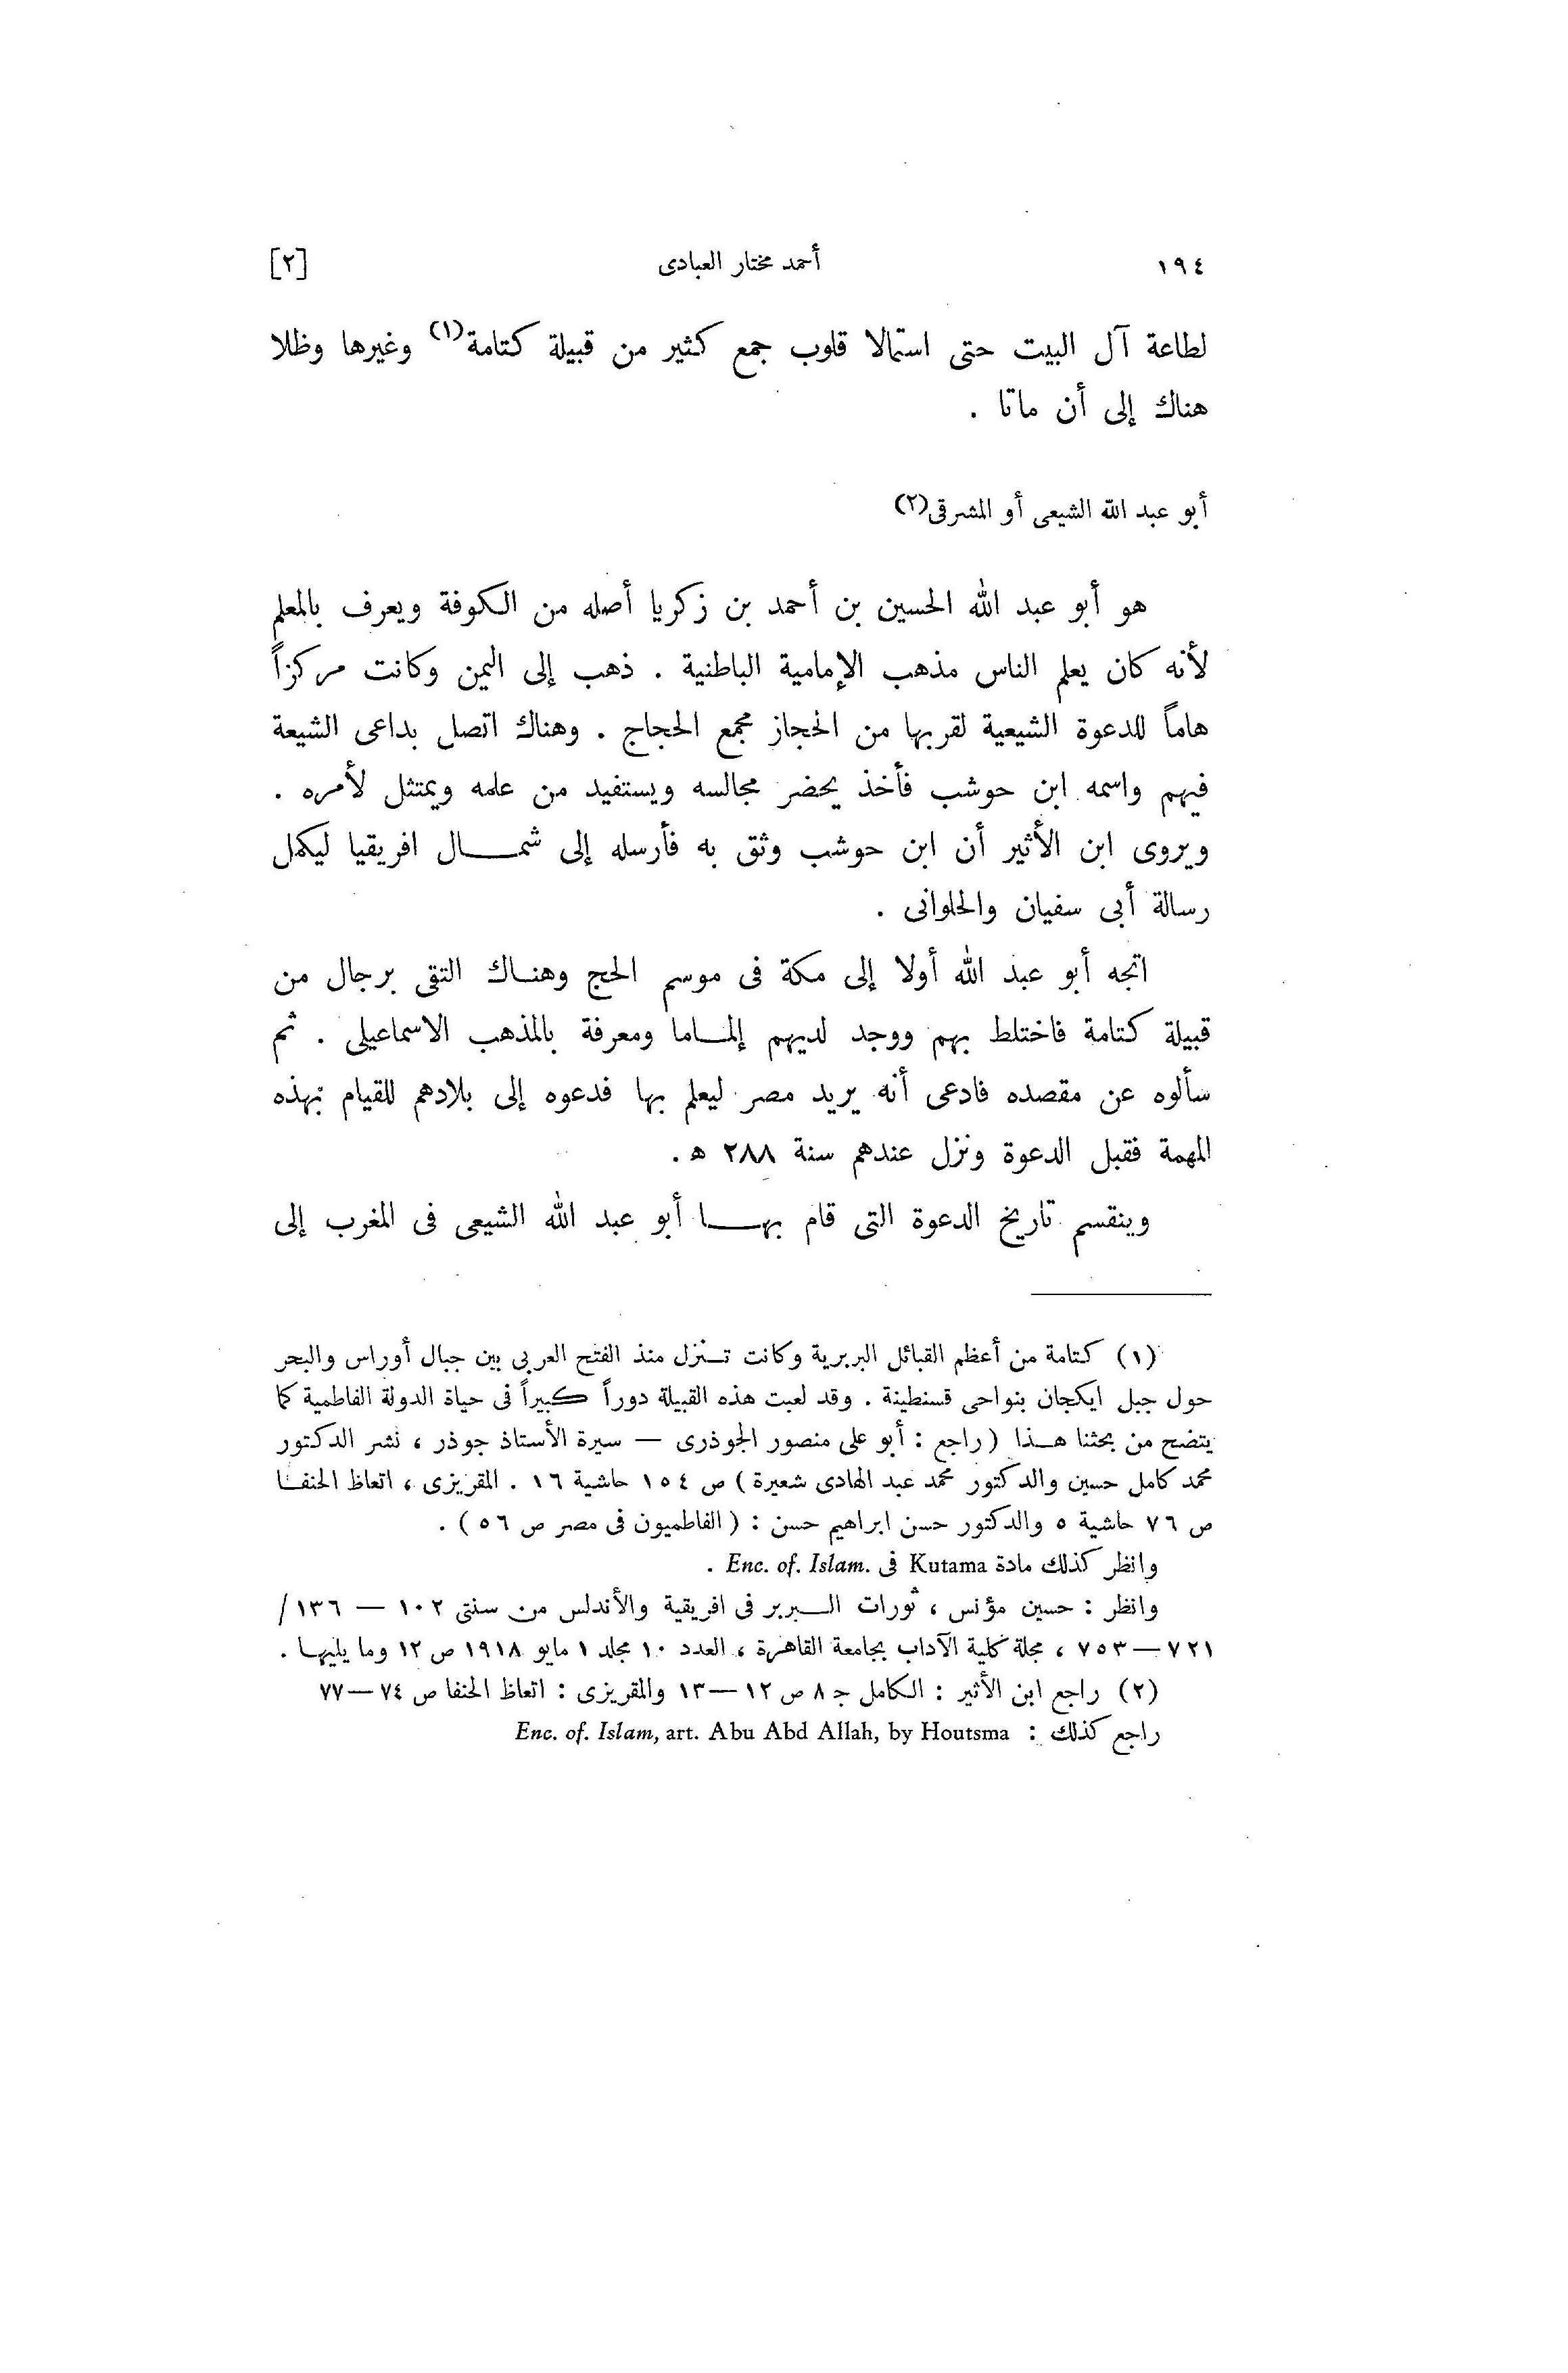 ١٩٤ أحمد مختار العبادى [٢]
لطاعة آل البيت حتى استمالا قلوب جمع كثير من قبيلة كتامة(١) وغيرها وظلا
هناك إلى أن ماتا .
أبو عبد الله الشيعى أو المشرقى(٢)
هو أبو عبد الله الحسين بن أحمد بن زكريا أصله من الكوفة ويعرف بالمعلم
لأنه كان يعلم الناس مذهب الإمامية الباطنية . ذهب إلى اليمن وكانت مركزاً
هاماً للدعوة الشيعية لقربها من الحجاز مجمع الحجاج . وهناك اتصل بداعى الشيعة
فيهم واسمه ابن حوشب فأخذ يحضر مجالسه ويستفيد من علمه ويمتثل لأمره .
ويروى ابن الأثير أن ابن حوشب وثق به فأرسله إلى شمال افريقيا ليكمل
رسالة أبى سفيان والحلوانى .
اتجه أبو عبد الله أولا إلى مكة فى موسم الحج وهناك التقى برجال من
قبيلة كتامة فاختلط بهم ووجد لديهم إلماما ومعرفة بالمذهب الاسماعيلى . ثم
سألوه عن مقصده فادعى أنه يريد مصر ليعلم بها فدعوه إلى بلادهم للقيام بهذه
المهمة فقبل الدعوة ونزل عندهم سنة ٢٨٨ ه .
وينقسم تاريخ الدعوة التى قام بها أبو عبد الله الشيعى فى المغرب إلى
(١) كتامة من أعظم القبائل البربرية وكانت تنزل منذ الفتح العربى بين جبال أوراس والبحر
حول جبل ايكجان بنواحى قسنطينة . وقد لعبت هذه القبيلة دوراً كبيراً فى حياة الدولة الفاطمية كما
يتضح من بحثنا هذا (راجع : أبو على منصور الجوذرى — سيرة الأستاذ جوذر ، نشر الدكتور
محمد كامل حسين والدكتور محمد عبد الهادى شعيرة ) ص ١٥٤ حاشية ١٦ . المقريزى ، اتعاظ الحنفا
ص ٧٦ حاشية ٥ والدكتور حسن ابراهيم حسن : ( الفاطميون فى مصر ص ٥٦ ) .
وانظر كذلك مادة Kutama فى Enc. of. Islam. .
وانظر : حسين مؤنس ، ثورات البربر فى افريقية والأندلس من سنتى ١٠٢ — ١٣٦ /
٧٢١—٧٥٣ ، مجلة كلية الآداب بجامعة القاهرة ، العدد ١٠ مجلد ١ مايو ١٩١٨ ص ١٢ وما يليها .
(٢) راجع ابن الأثير : الكامل ج ٨ ص ١٢—١٣ والمقريزى : اتعاظ الحنفا ص ٧٤—٧٧
راجع كذلك : Enc. of. Islam, art. Abu Abd Allah, by Houtsma